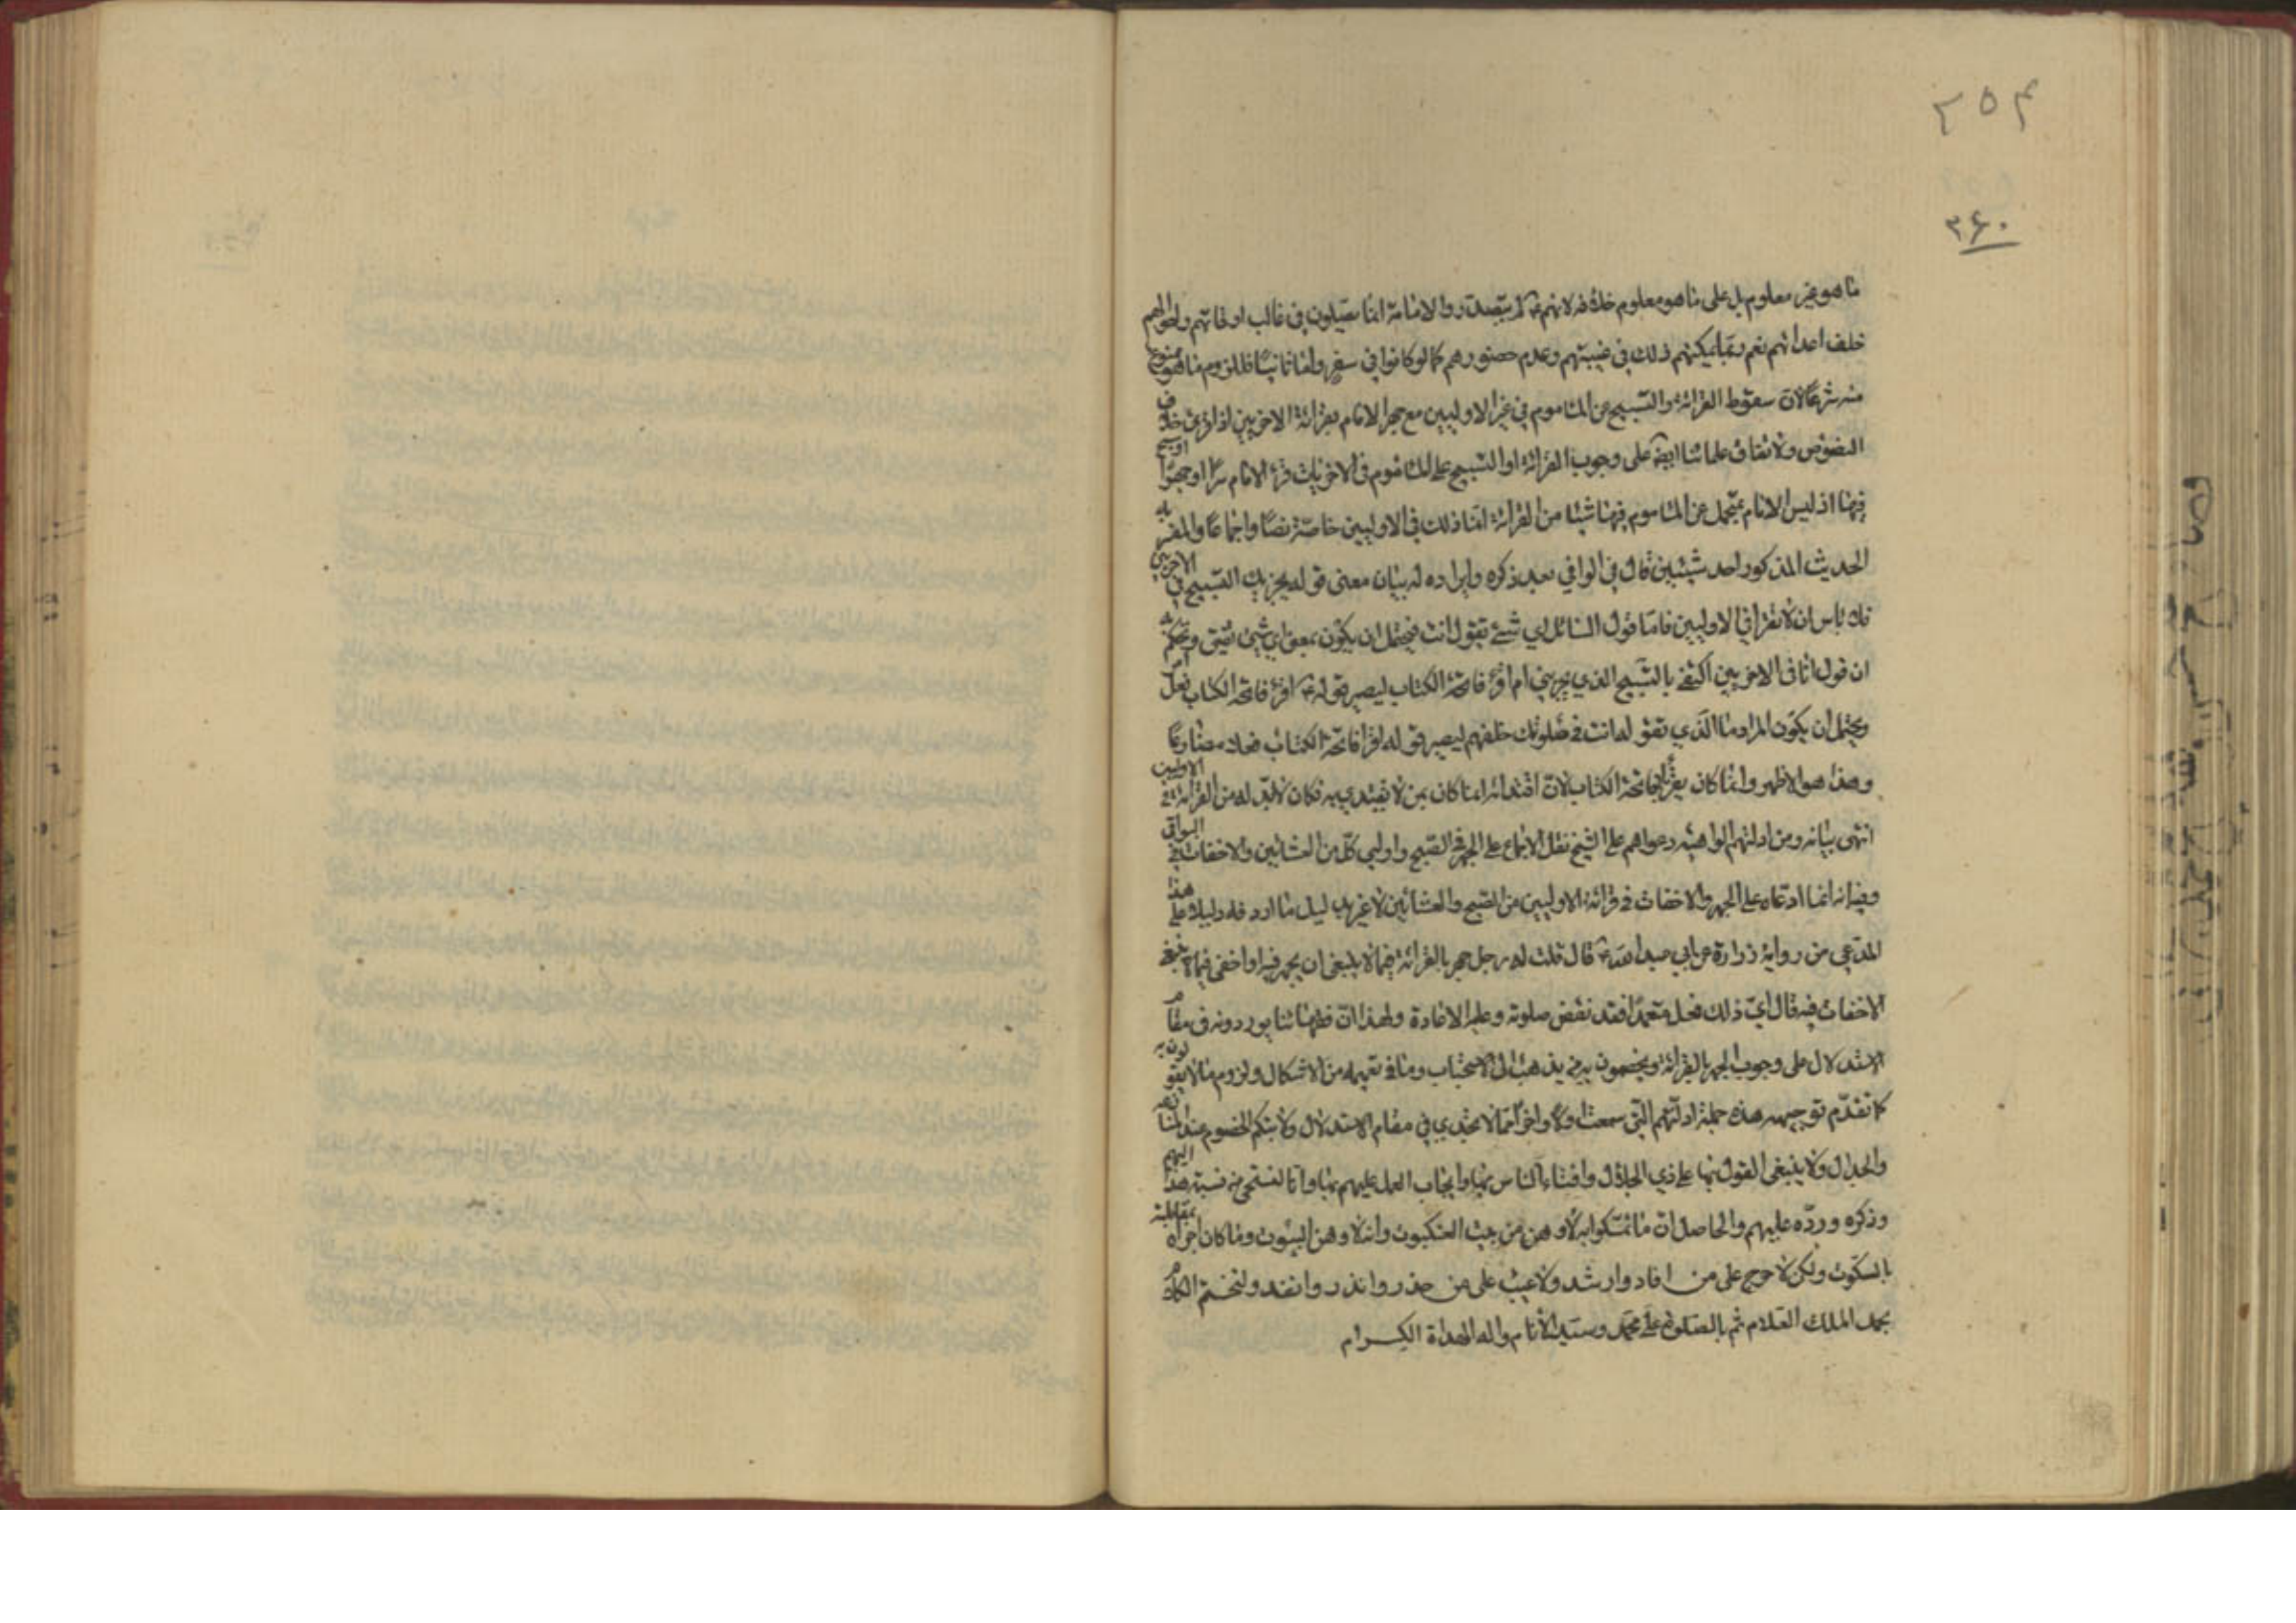 ۲۵۴
۳۶۰
ما هو غير معلوم بل على ما هو معلوم خلافه لانهم ع لم يتصدروا الامامة انما يصلون في غالب اوقاتهم واحوالهم
خلف اعدائهم نعم ربما يمكنهم ذلك في غيبتهم وعدم حضورهم كما لو كانوا في سفر واما ثانيا فللزوم ما هو ممنوع
منه شرعا لان سقوط القرائة والتسبيح عن الماموم في غير الاوليين مع جهر الامام بقرائة الاخريين خلاف
النصوص ولاتفاق علمائنا ايضا على وجوب القرائة او التسبيح على الماموم في الاخريات قرء الامام سرا او جهرا او سبح
فيها اذ ليس الامام يتحمل عن الماموم فيها شيئا من القرائة انما ذلك في الاوليين خاصة نصا واجماعا والمقر به
الحديث المذكور احد شيئين قال في الوافي بعد ذكره وايراده له بيان معنى قوله يجزيك التسبيح في الاخريين
فلا باس ان لا تقرا في الاوليين فاما قول السائل اي شئ تقول انت فيحتمل ان يكون بمعنى اي شئ
ان قول انا في الاخريين اكتفي بالتسبيح الذي يجزيني ام اقرء فاتحة الكتاب ليصير قوله ع اقرء فاتحة الكتاب فعل امر
ويحتمل ان يكون المراد ما الذي تقوله انت في صلوتك خلفهم ليصير قوله اقرا فاتحة الكتاب فعلا مضارعا
وهذا هو الاظهر وانما كان يقرأ بفاتحة الكتاب لان اقتدائه انما كان بمن لا يقتدي به فكان لا بد له من القرائة في الاوليين
انتهى بيانه ومن ادلتهم الواهية دعواهم على الشيخ نقل الاجماع على الجهر في الصبح واوليي كل من العشائين والاخفات في البواقي
وفيه انه انما ادعاه على الجهر والاخفات في قرائة الاوليين من الصبح والعشائين لا غير بدليل ما اردفه دليلا على هذا
المدعى من رواية زرارة عن ابي عبد الله ع قال قلت له رجل جهر بالقرائة فيما لا ينبغي ان يجهر فيه او اخفى فيما لا ينبغي
الاخفات فيه قال اي ذلك فعل متعمدا فقد نقض صلوته وعليه الاعادة ولهذا ان فقهائنا يوردونه في مقام
الاستدلال على وجوب الجهر بالقرائة ويخصمون به من يذهب الى الاستحباب وما في تعميمه من الاشكال ولزوم ما لا يقولون به
كما تقدم توجيهه هذه جملة ادلتهم التي سمعت اولا واخرا مما لا تجدي في مقام الاستدلال ولا تبكم الخصوم عند
والجدال ولا ينبغي القول بها على ذي الجلال وافتاء الناس بها وايجاب العمل عليهم بها وانا لنستحي من نسبة هذا اليهم
وذكره ورده عليهم والحاصل ان ما تمسكوا به لاوهن من بيت العنكبوت وانه لاوهن البيوت وما كان احراه بمقابلته
بالسكوت ولكن لا حرج على من افاد وارشد ولا عيب على من حذر وانذر وانقد ولنختم الكلام
بحمد الملك العلام ثم بالصلوة على محمد وسيد الأنام واله الهداة الكرام